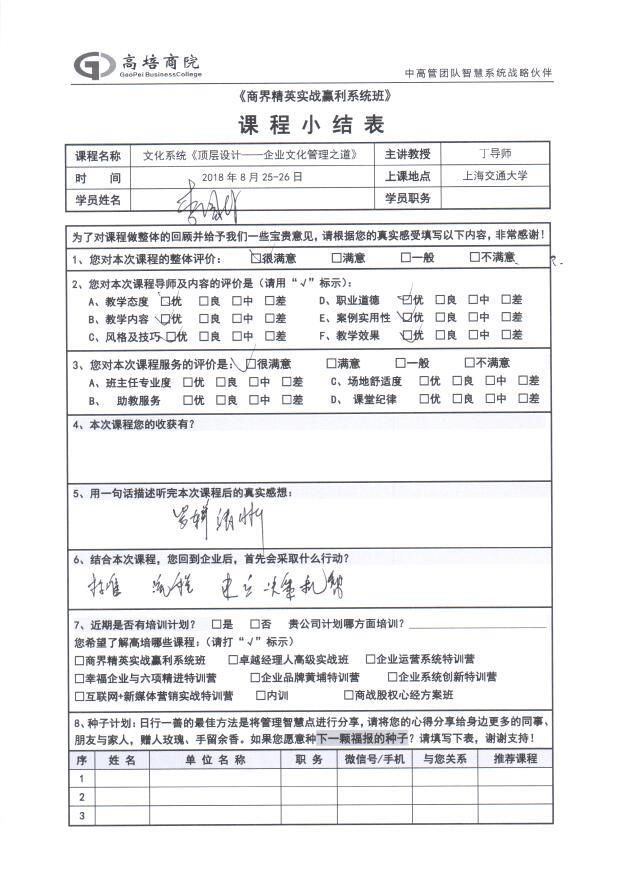 高培商院
GaoPei BusinessCollege
中高管团队智慧系统战略伙伴
《商界精英实战赢利系统班》
课程小结表
课程名称 文化系统《顶层设计——企业文化管理之道》 主讲教授 丁导师
时 间 2018年8月25-26日 上课地点 上海交通大学
学员姓名 学员职务
为了对课程做整体的回顾并给予我们一些宝贵意见,请根据您的真实感受填写以下内容,非常感谢!
1、您对本次课程的整体评价: ☑很满意 □满意 □一般 □不满意
2、您对本次课程导师及内容的评价是(请用“√”标示):
A、教学态度 ☑优 □良 □中 □差 D、职业道德 ☑优 □良 □中 □差
B、教学内容 ☑优 □良 □中 □差 E、案例实用性 ☑优 □良 □中 □差
C、风格及技巧 ☑优 □良 □中 □差 F、教学效果 ☑优 □良 □中 □差
3、您对本次课程服务的评价是: ☑很满意 □满意 □一般 □不满意
A、班主任专业度 □优 □良 □中 □差 C、场地舒适度 □优 □良 □中 □差
B、 助教服务 □优 □良 □中 □差 D、 课堂纪律 □优 □良 □中 □差
4、本次课程您的收获有?
5、用一句话描述听完本次课程后的真实感想:
逻辑清晰
6、结合本次课程,您回到企业后,首先会采取什么行动?
标准 流程 建立 决策机制
7、近期是否有培训计划? □是 □否 贵公司计划哪方面培训?
您希望了解高培哪些课程:(请打“√”标示)
□商界精英实战赢利系统班 □卓越经理人高级实战班 □企业运营系统特训营
□幸福企业与六项精进特训营 □企业品牌黄埔特训营 □企业系统创新特训营
□互联网+新媒体营销实战特训营 □内训 □商战股权心经方案班
8、种子计划:日行一善的最佳方法是将管理智慧点进行分享,请将您的心得分享给身边更多的同事、
朋友与家人,赠人玫瑰、手留余香。如果您愿意种下一颗福报的种子?请填写下表,谢谢支持!
序 姓名 单位名称 职务 微信号/手机 与您关系 推荐课程
1
2
3